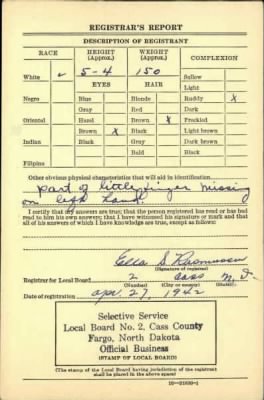 REGISTRAR'S REPORT
DESCRIPTION OF REGISTRANT
RACE HEIGHT (Approx.) WEIGHT (Approx.) COMPLEXION
White ✓ 5-4 150 Sallow
EYES HAIR Light
Negro Blue Blonde Ruddy X
Gray Red Dark
Oriental Hazel Brown X Freckled
Brown X Black Light brown
Indian Black Gray Dark brown
Bald Black
Filipino
Other obvious physical characteristics that will aid in identification
part of little finger missing
on left hand
I certify that my answers are true; that the person registered has read or has had
read to him his own answers; that I have witnessed his signature or mark and that
all of his answers of which I have knowledge are true, except as follows:
Ella S. Rasmussen
(Signature of registrar)
Registrar for Local Board 2 Cass N. D.
(Number) (City or county) (State)
Date of registration Apr. 27, 1942
Selective Service
Local Board No. 2, Cass County
Fargo, North Dakota
Official Business
(STAMP OF LOCAL BOARD)
(The stamp of the Local Board having jurisdiction of the registrant
shall be placed in the above space)